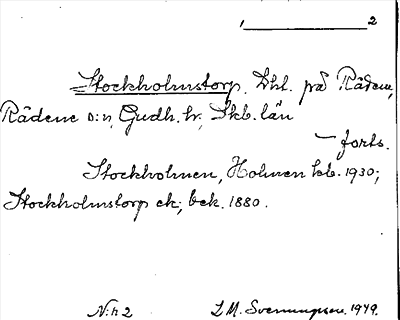 1 2
Stockholmstorp. Lht. på Rådene,
Rådene s:n, Gudh. hr, Skb. län
— forts.
Stockholmen, Holmen kb. 1930;
Stockholmstorp ek; bek. 1880.
N:r 2 L M. Svenungsson. 1949.